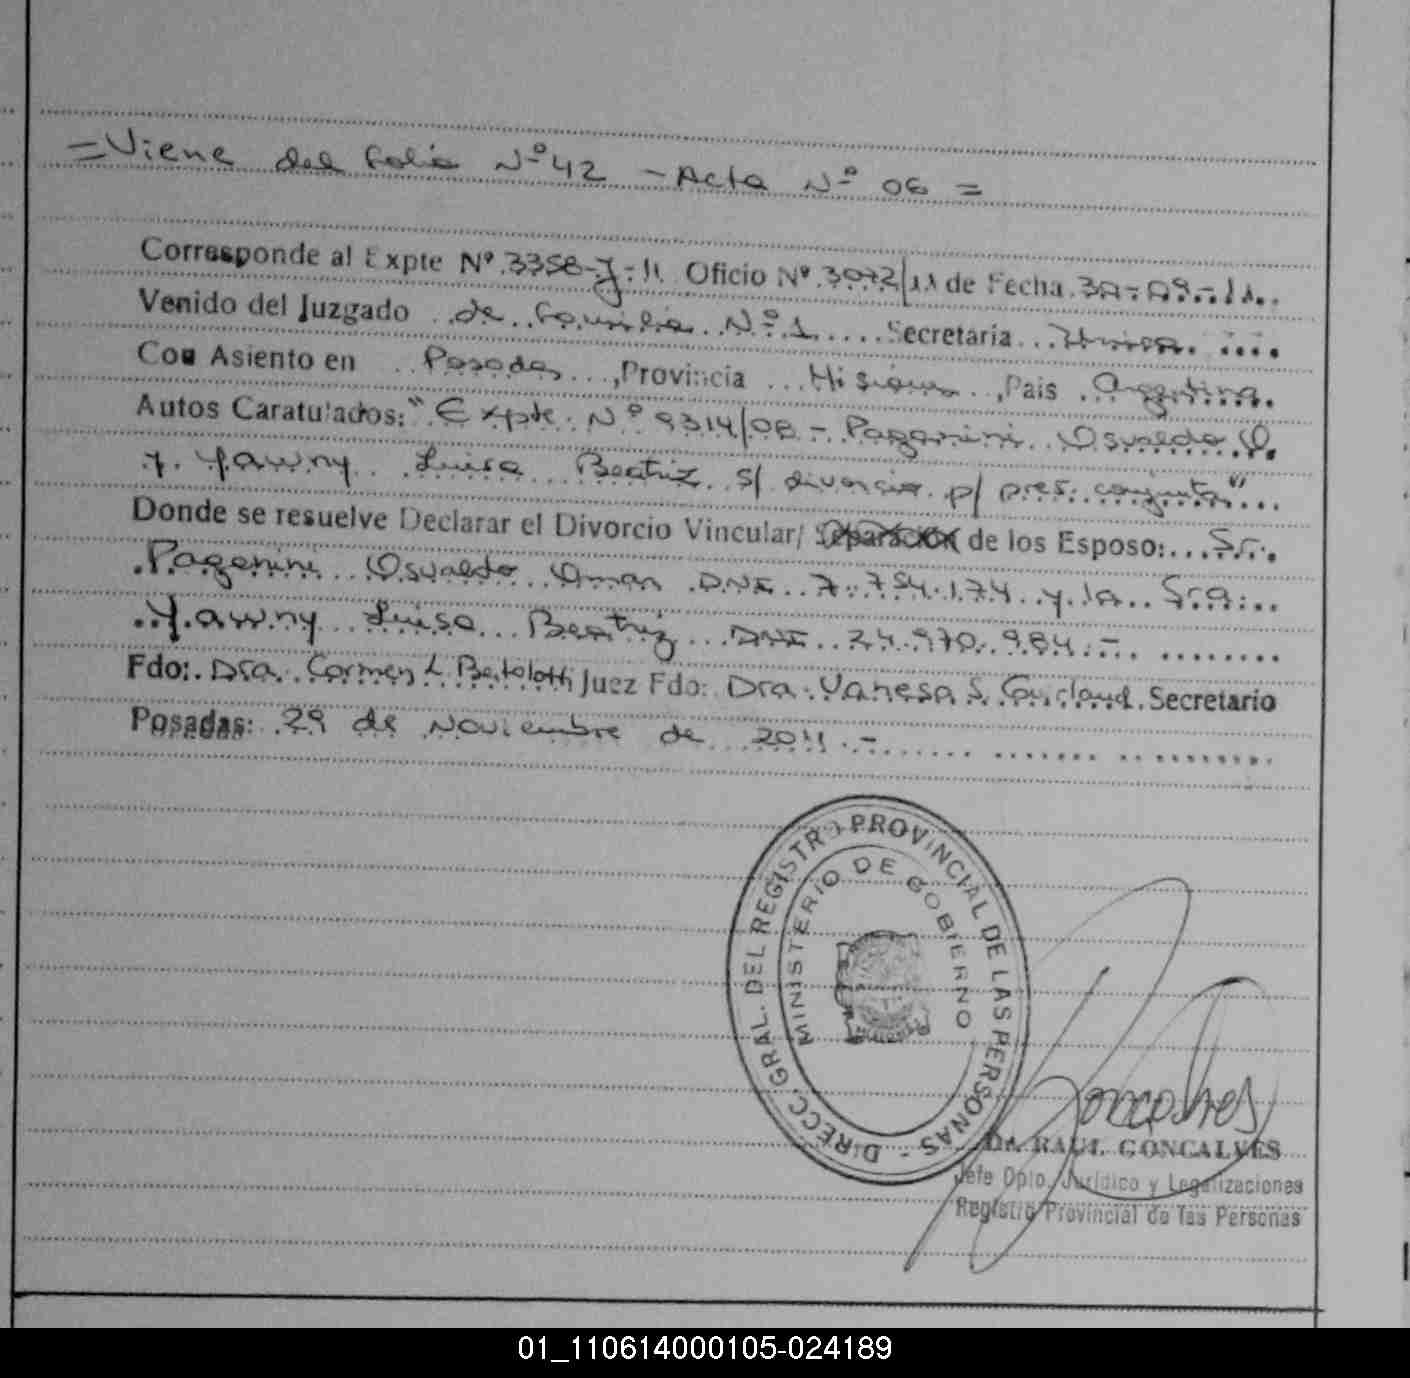 =Viene del folio Nº 42 - Acta Nº 06 =
Corresponde al Expte Nº 3358-J-11 Oficio Nº 3072/11 de Fecha 30-09-11..
Venido del Juzgado ..de familia Nº 1.... Secretaria ...Unica. ....
Con Asiento en ..Posadas..., Provincia ...Misiones.., Pais .Argentina.
Autos Caratulados: "Expte. Nº 9314/08 - Paganini Osvaldo O.
y Yawny Luisa Beatriz s/ divorcio p/ pres. conjunta"...
Donde se resuelve Declarar el Divorcio Vincular/ Separación de los Esposo:...Sr..
.Paganini Osvaldo Omar DNI 7.754.174 y la Sra...
..Yawny Luisa Beatriz DNI 24.970.984.- ........
Fdo:. Dra. Carmen L. Bertolotti Juez Fdo: Dra. Vanesa S. Secretario
Posadas: 29 de Noviembre de 2011.-
DIRECC. GRAL. DEL REGISTRO PROVINCIAL DE LAS PERSONAS -
MINISTERIO DE GOBIERNO
MISIONES
Goncalves
Dr. RAUL GONCALVES
Jefe Dpto. Jurídico y Legalizaciones
Registro Provincial de las Personas
01_110614000105-024189